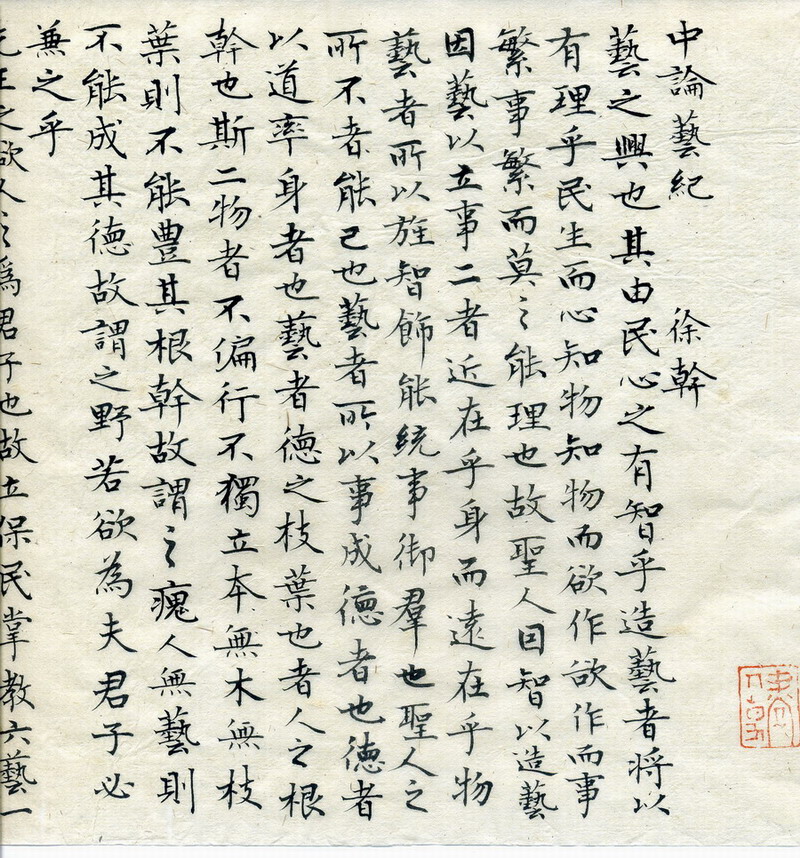 中論藝紀 徐幹
藝之興也其由民心之有智乎造藝者將以
有理乎民生而心知物知物而欲作欲作而事
繁事繁而莫之能理也故聖人因智以造藝
因藝以立事二者近在乎身而遠在乎物
藝者所以旌智飾能統事御羣也聖人之
所不者能已也藝者所以事成德者也德者
以道率身者也藝者德之枝葉也者人之根
幹也斯二物者不偏行不獨立本無木無枝
葉則不能豊其根幹故謂之瘣人無藝則
不能成其德故謂之野若欲為夫君子必
兼之乎
先王之欲人之爲君子也故立保民掌教六藝一